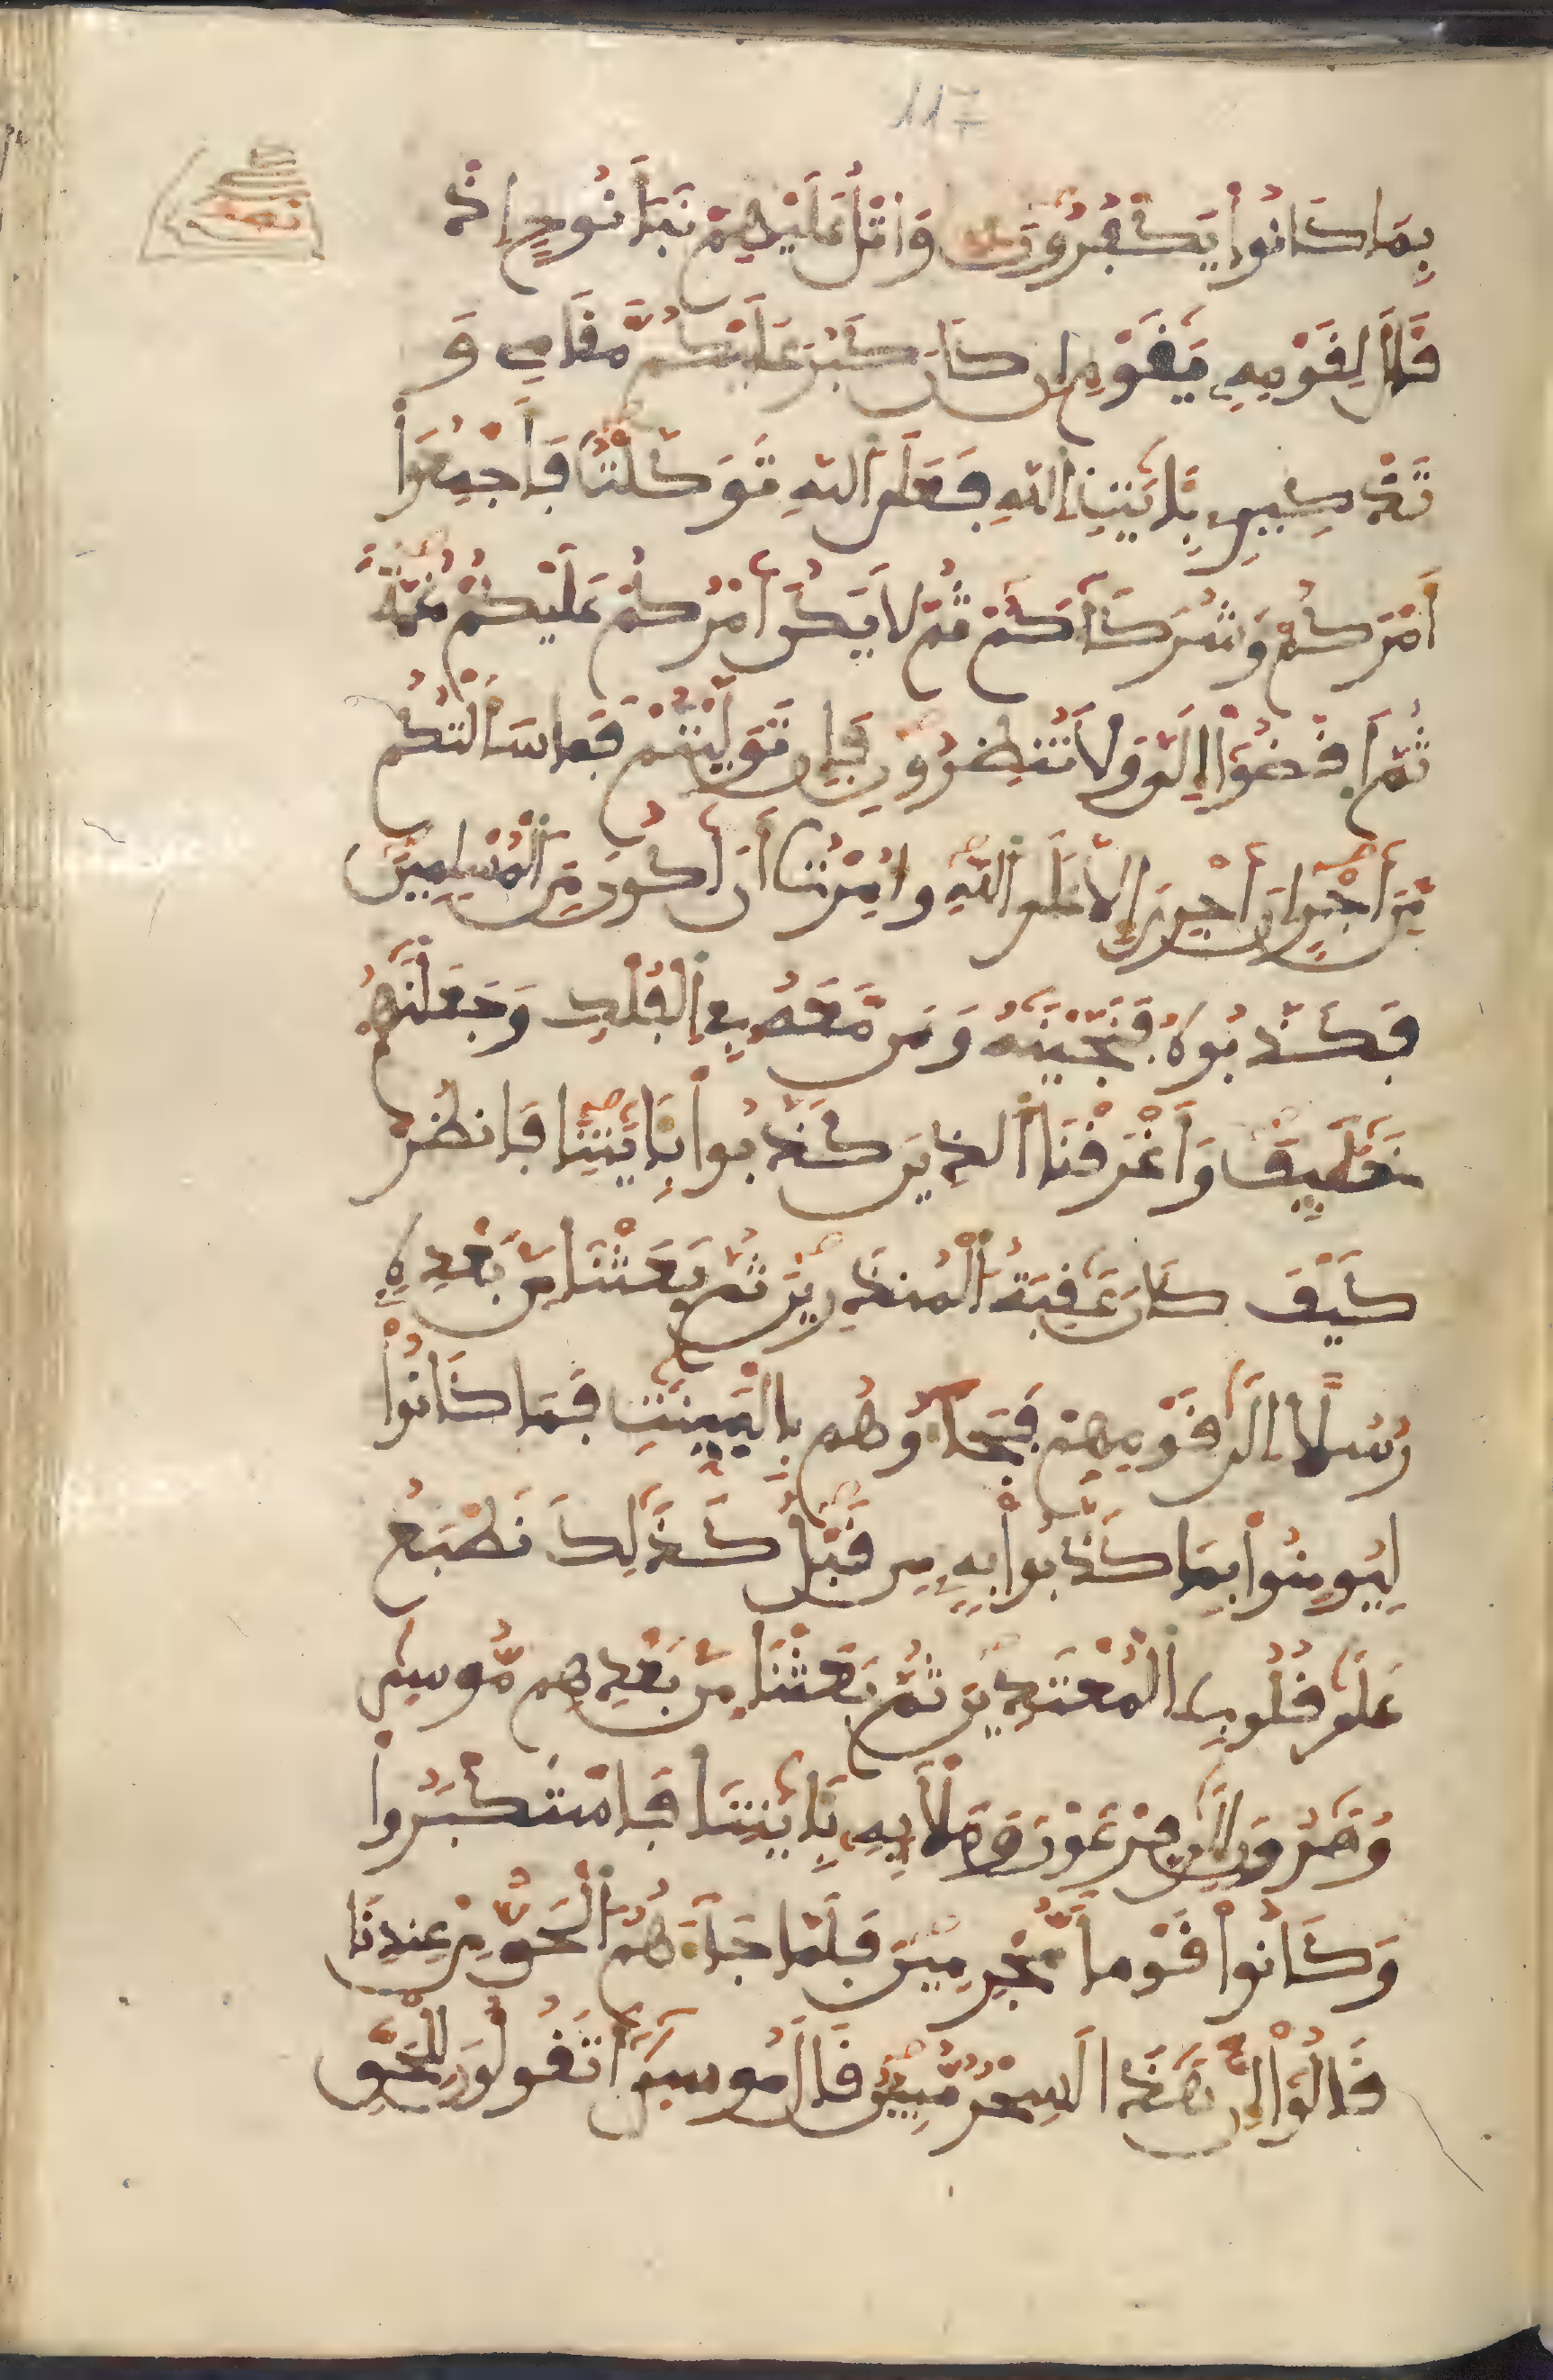 117
نصف
بِمَا كَانُوا۟ يَكْفُرُونَ وَاتْلُ عَلَيْهِمْ نَبَأَ نُوحٍ اِذْ
قَالَ لِقَوْمِهِۦ يَٰقَوْمِ إِن كَانَ كَبُرَ عَلَيْكُم مَّقَامِے وَ
تَذْكِيرِے بِـَٔايَٰتِ اِ۬للَّهِ فَعَلَى اَ۬للَّهِ تَوَكَّلْتُ فَأَجْمِعُوٓا۟
أَمْرَكُمْ وَشُرَكَآءَكُمْ ثُمَّ لَا يَكُنَ اَمْرُكُمْ عَلَيْكُمْ غُمَّةً
ثُمَّ اَ۪قْضُوٓا۟ إِلَىَّ وَلَا تُنظِرُونِ فَإِن تَوَلَّيْتُمْ فَمَا سَأَلْتُكُم
مِّنَ اَجْرٍ اِنَ اَجْرِيَ إِلَّا عَلَى اَ۬للَّهِ وَأُمِرْتُ أَنَ اَكُونَ مِنَ اَ۬لْمُسْلِمِينَ
فَكَذَّبُوهُ فَنَجَّيْنَٰهُ وَمَن مَّعَهُۥ فِے اِ۬لْفُلْكِ وَجَعَلْنَٰهُمْ
خَلَٰٓئِفَ وَأَغْرَقْنَا اَ۬لذِينَ كَذَّبُوا۟ بِـَٔايَٰتِنَا فَانظُرْ
كَيْفَ كَانَ عَٰقِبَةُ اُ۬لْمُنذَرِينَ ثُمَّ بَعَثْنَا مِنۢ بَعْدِهِۦ
رُسُلًا اِلَىٰ قَوْمِهِمْ فَجَآءُوهُم بِالْبَيِّنَٰتِ فَمَا كَانُوا۟
لِيُومِنُوا۟ بِمَا كَذَّبُوا۟ بِهِۦ مِن قَبْلُ كَذَٰلِكَ نَطْبَعُ
عَلَىٰ قُلُوبِ اِ۬لْمُعْتَدِينَ ثُمَّ بَعَثْنَا مِنۢ بَعْدِهِم مُّوسَىٰ
وَهَٰرُونَ إِلَىٰ فِرْعَوْنَ وَمَلَإِيْهِۦ بِـَٔايَٰتِنَا فَاسْتَكْبَرُوا۟
وَكَانُوا۟ قَوْمًا مُّجْرِمِينَ فَلَمَّا جَآءَهُمُ اُ۬لْحَقُّ مِنْ عِندِنَا
قَالُوٓا۟ إِنَّ هَٰذَا لَسِحْرٌ مُّبِينٌ قَالَ مُوسَىٰٓ أَتَقُولُونَ لِلْحَقِّ